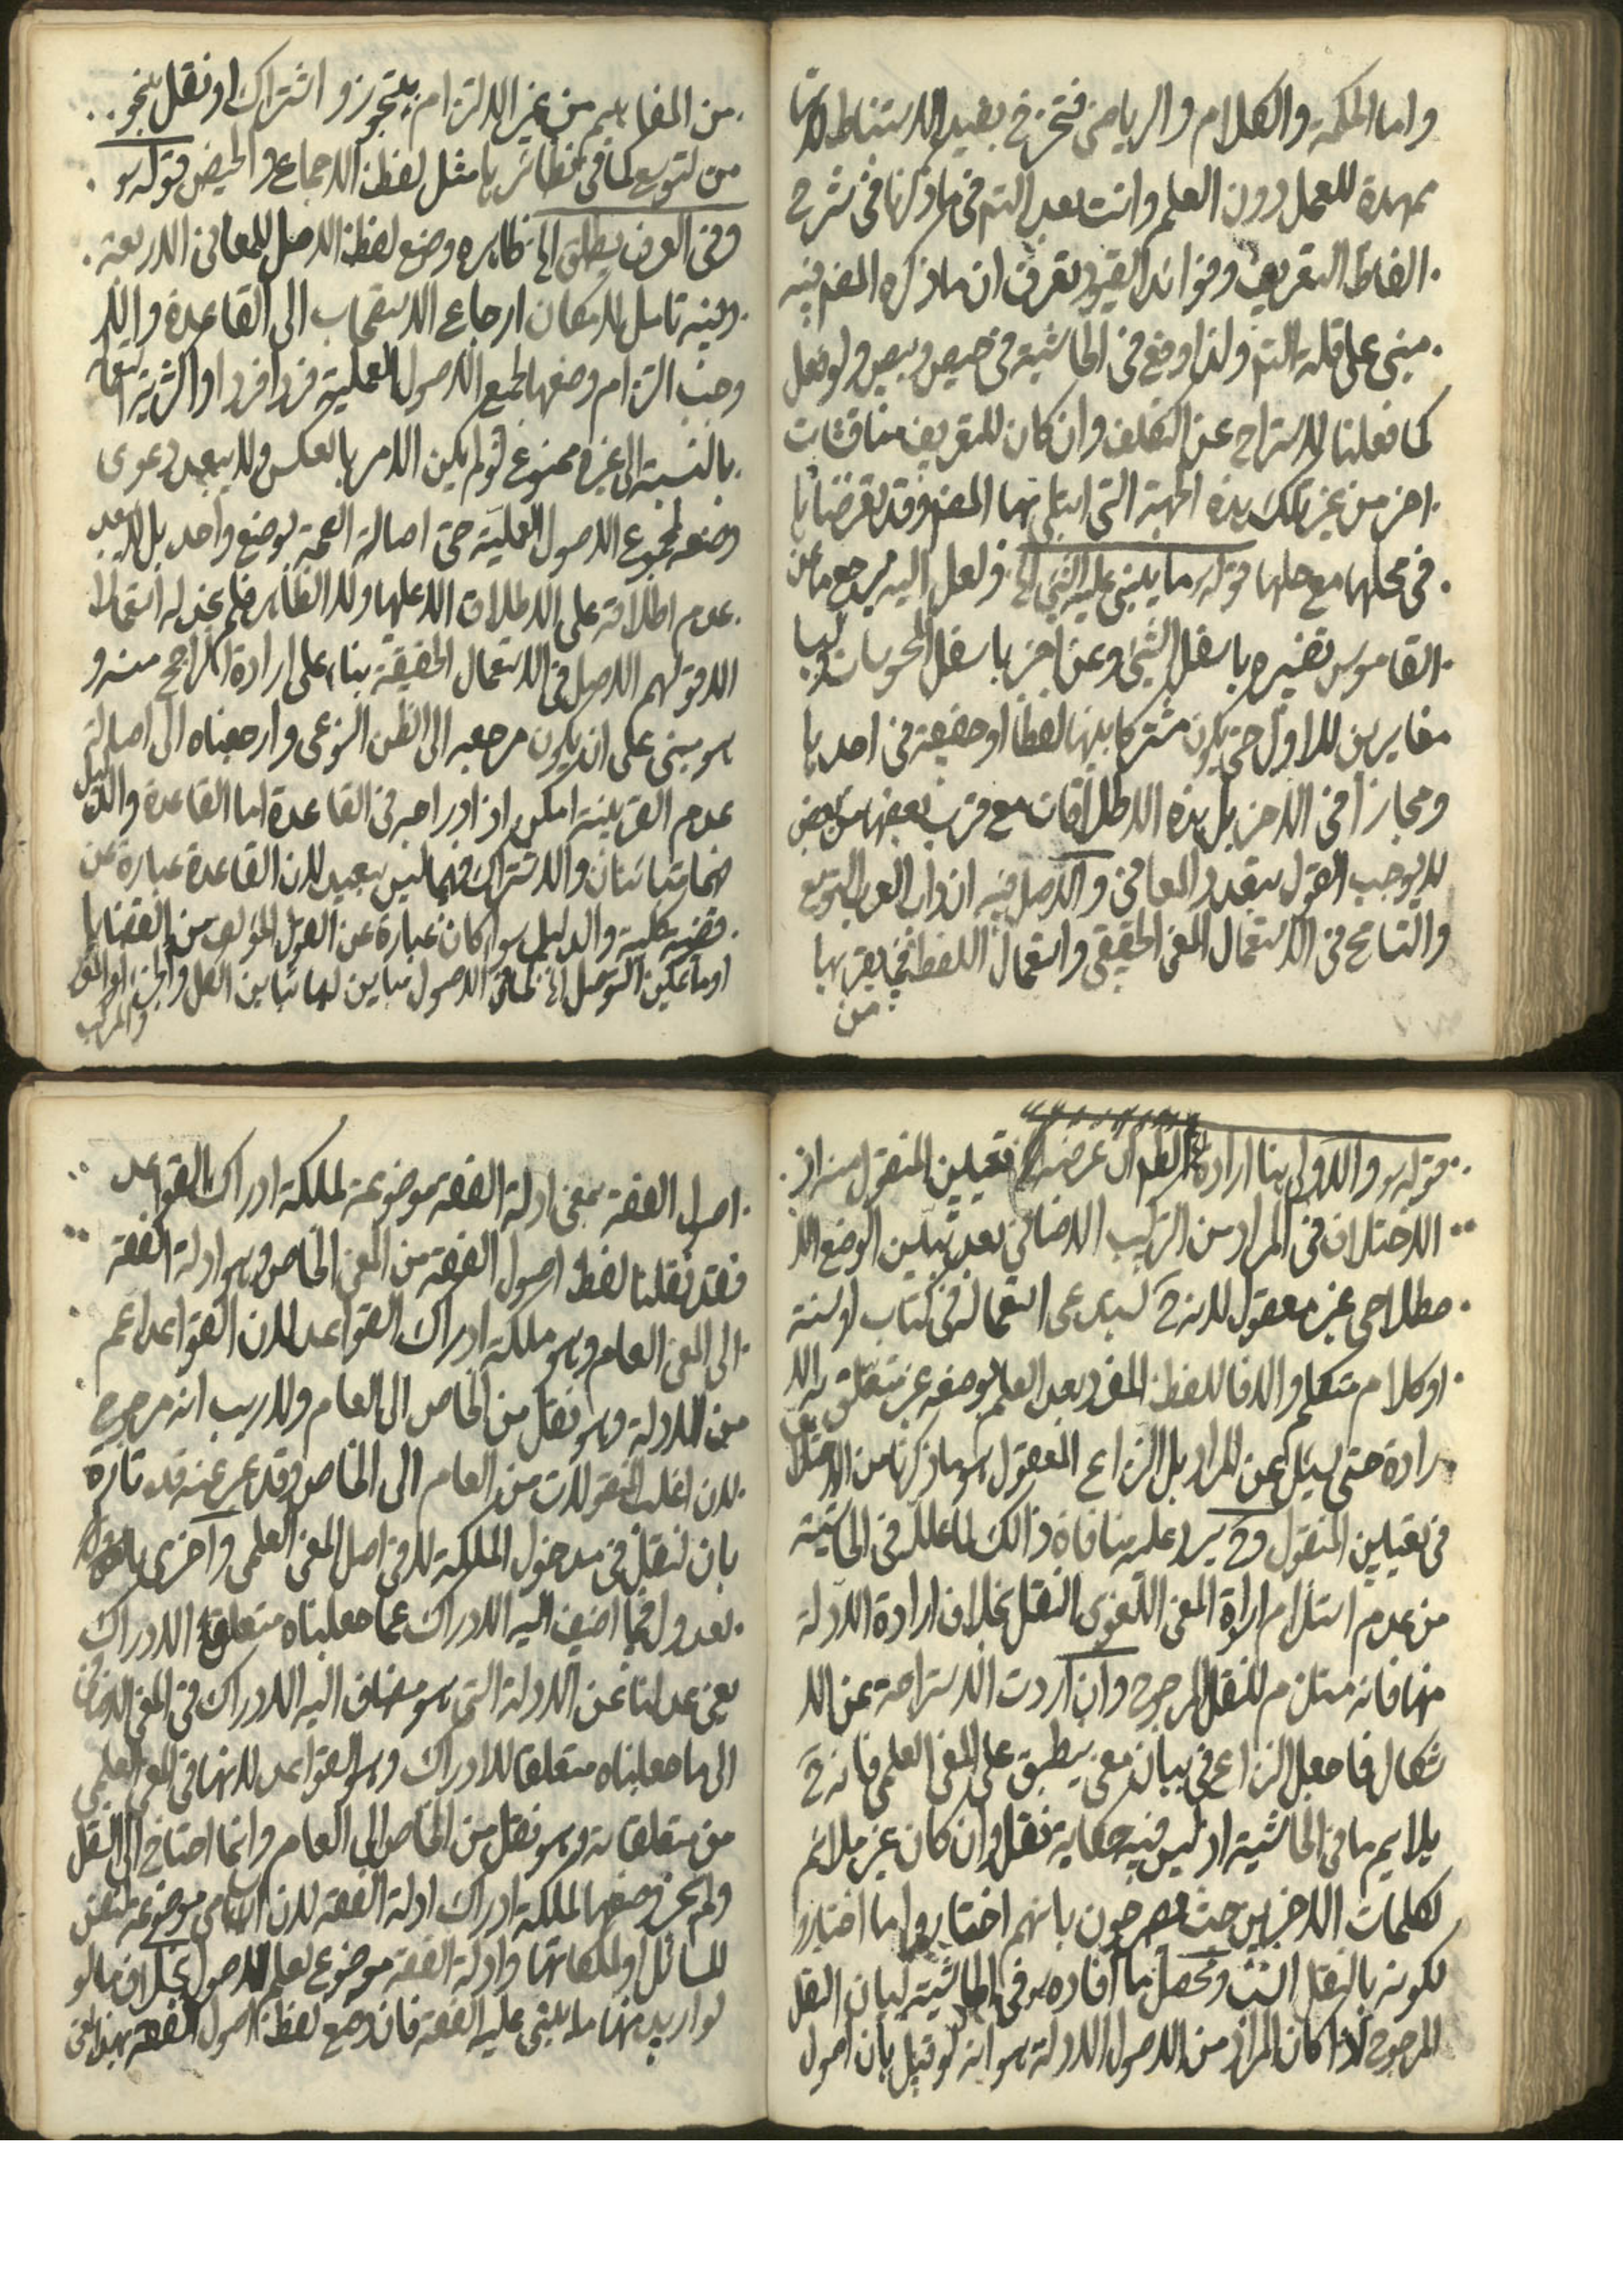 واما الحكمة والكلام والرياضى فتخرج بقيد الاستنباط لانها
ممهدة للعمل دون العلم وانت بعد التم فى ما ذكرنا فى شرح
الفاظ التعريف وفوائد القيود تعرف ان ما ذكره المصم فيه
مبنى على قلة التم ولذا وقع فى الحاشية فى حيص وبيص ولو فعل
كما فعلنا لاستراح عن التكلف وان كان للتعريف مناقشات
اخر من غير تلك بهذه الجهة التى ابتلى بها المصم وقد تعرضنا لها
فى محلها مع حلها قوله ما يبتنى عليه الشئ الخ ولعل اليه يرجع ما عن
القاموس تفسيره باسفل الشئ وعن اخر باسفل المحسوسات
مغايرين للاول حتى يكون مشتركا بينها لفظا او حقيقة فى احديها
ومجازا فى الاخر بل هذه الاطلاقات مع قرب بعضها من بعض
لا يوجب القول بتعدد المعانى والاصل فيه ان داب العرب التوسع
والتسامح فى الاستعمال المعنى الحقيقى واستعمال اللفظ فيما يقربها
من
من المفاهيم من غير الالتزام بتجوز واشتراك او نقل بنحو
من التوسع كما فى نظائرها مثل لفظ الاجماع والحيض قوله س
وفى العرف يطلق الخ ظاهره وضع لفظ الاصل للمعانى الاربعة
وفيه تامل لامكان ارجاع الاستصحاب الى القاعدة والدليل
وحب التزام وضعها لجميع الاصول العملية فردا فردا واكثرية استعماله
بالنسبة الى غيره ممنوع لو لم يكن الامر بالعكس ولا يبعد دعوى
وضعه لمجموع الاصول العملية حتى اصالة الصحة بوضع واحد بل لا يبعد
عدم اطلاقه على الاطلاق الا عليها ولا الظاهر فلم نجد له استعمالا
الا قولهم الاصل فى الاستعمال الحقيقة بناء على ارادة الراجح منه و
هو مبنى على ان يكون مرجعه الى الظن النوعى وارجعناه الى اصالة
عدم القرينة امكن اذا ادراجه فى القاعدة اما القاعدة والدليل
فهما متباينان والاشتراك فيهما ليس ببعيد لان القاعدة عبارة عن
قضية كلية والدليل سواء كان عبارة عن القول المؤلف من القضايا
او ما يمكن التوصل الخ كما فى الاصول مباين لها تباين الكل والجزء او المفرد
والمركب
قوله س والاولى هنا ارادة الخ الظم ان غرضه تعيين المنقول منه اذ
الاختلاف فى المراد من التركيب الاضافى بعد تبيين الوضع الا
صطلاحى غير معقول لانه ح ليس يدعى استعماله فى كتاب او سنة
او كلام متكلم والا فاللفظ المفرد بعد العلم بوضعه غير متعلق به الا
رادة حتى يسئل عن المراد بل النزاع المعقول هو ما ذكرنا من الاختلاف
فى تعيين المنقول وح يرد عليه منافاة ذالك لما علله فى الحاشية
من عدم استلزام ارادة المعنى اللغوى النقل بخلاف ارادة الادلة
منها فانه مستلزم للنقل المرجوح وان اردت الاستراحة عن الا
شكال فاجعل النزاع فى بيان معنى ينطبق على المعنى العلمى فانه ح
يلايم ما فى الحاشية اذ ليس فيه حكاية نقل وان كان غير ملائم
لكلمات الاخرين حيث يصرحون بانهم اختاروا ما اختاروا
لكونه بالنقل انسب ومحصل ما افاده س فى الحاشية لبيان النقل
المرجوح اذا كان المراد من الاصول الادلة هو انه لو قيل بان اصول
اصول الفقه بمعنى ادلة الفقه موضوعة لملكة ادراك القواعد
فقد نقلنا لفظ اصول الفقه من المعنى الخاص وهو ادلة الفقه
الى المعنى العام وهو ملكة ادراك القواعد لان القواعد اعم
من الادلة وهو نقل من الخاص الى العام ولا ريب انه مرجوح
لان اغلب المنقولات من العام الى الخاص وقد عبر عنه قده تارة
بان النقل فى مدخول الملكة لا فى اصل المعنى العلمى واخرى بالعدول
بعدول فيما اضيف اليه الادراك عما جعلناه متعلق الادراك
يعنى عدلنا عن الادلة التى هو مضاف اليه الادراك فى المعنى الاضافى
الى ما جعلناه متعلقا للادراك وهو القواعد لانها فى المعنى العلمى
من متعلقاته وهو نقل من الخاص الى العام وانما احتاج الى النقل
ولم يجز وضعها لملكة ادراك ادلة الفقه لان الاسامى موضوعة لنفس
المسائل او لملكاتها وادلة الفقه موضوع لعلم الاصول بخلاف ما لو
لو اريد منها ما يبتنى عليه الفقه فان وضع لفظ اصول الفقه بهذا المعنى